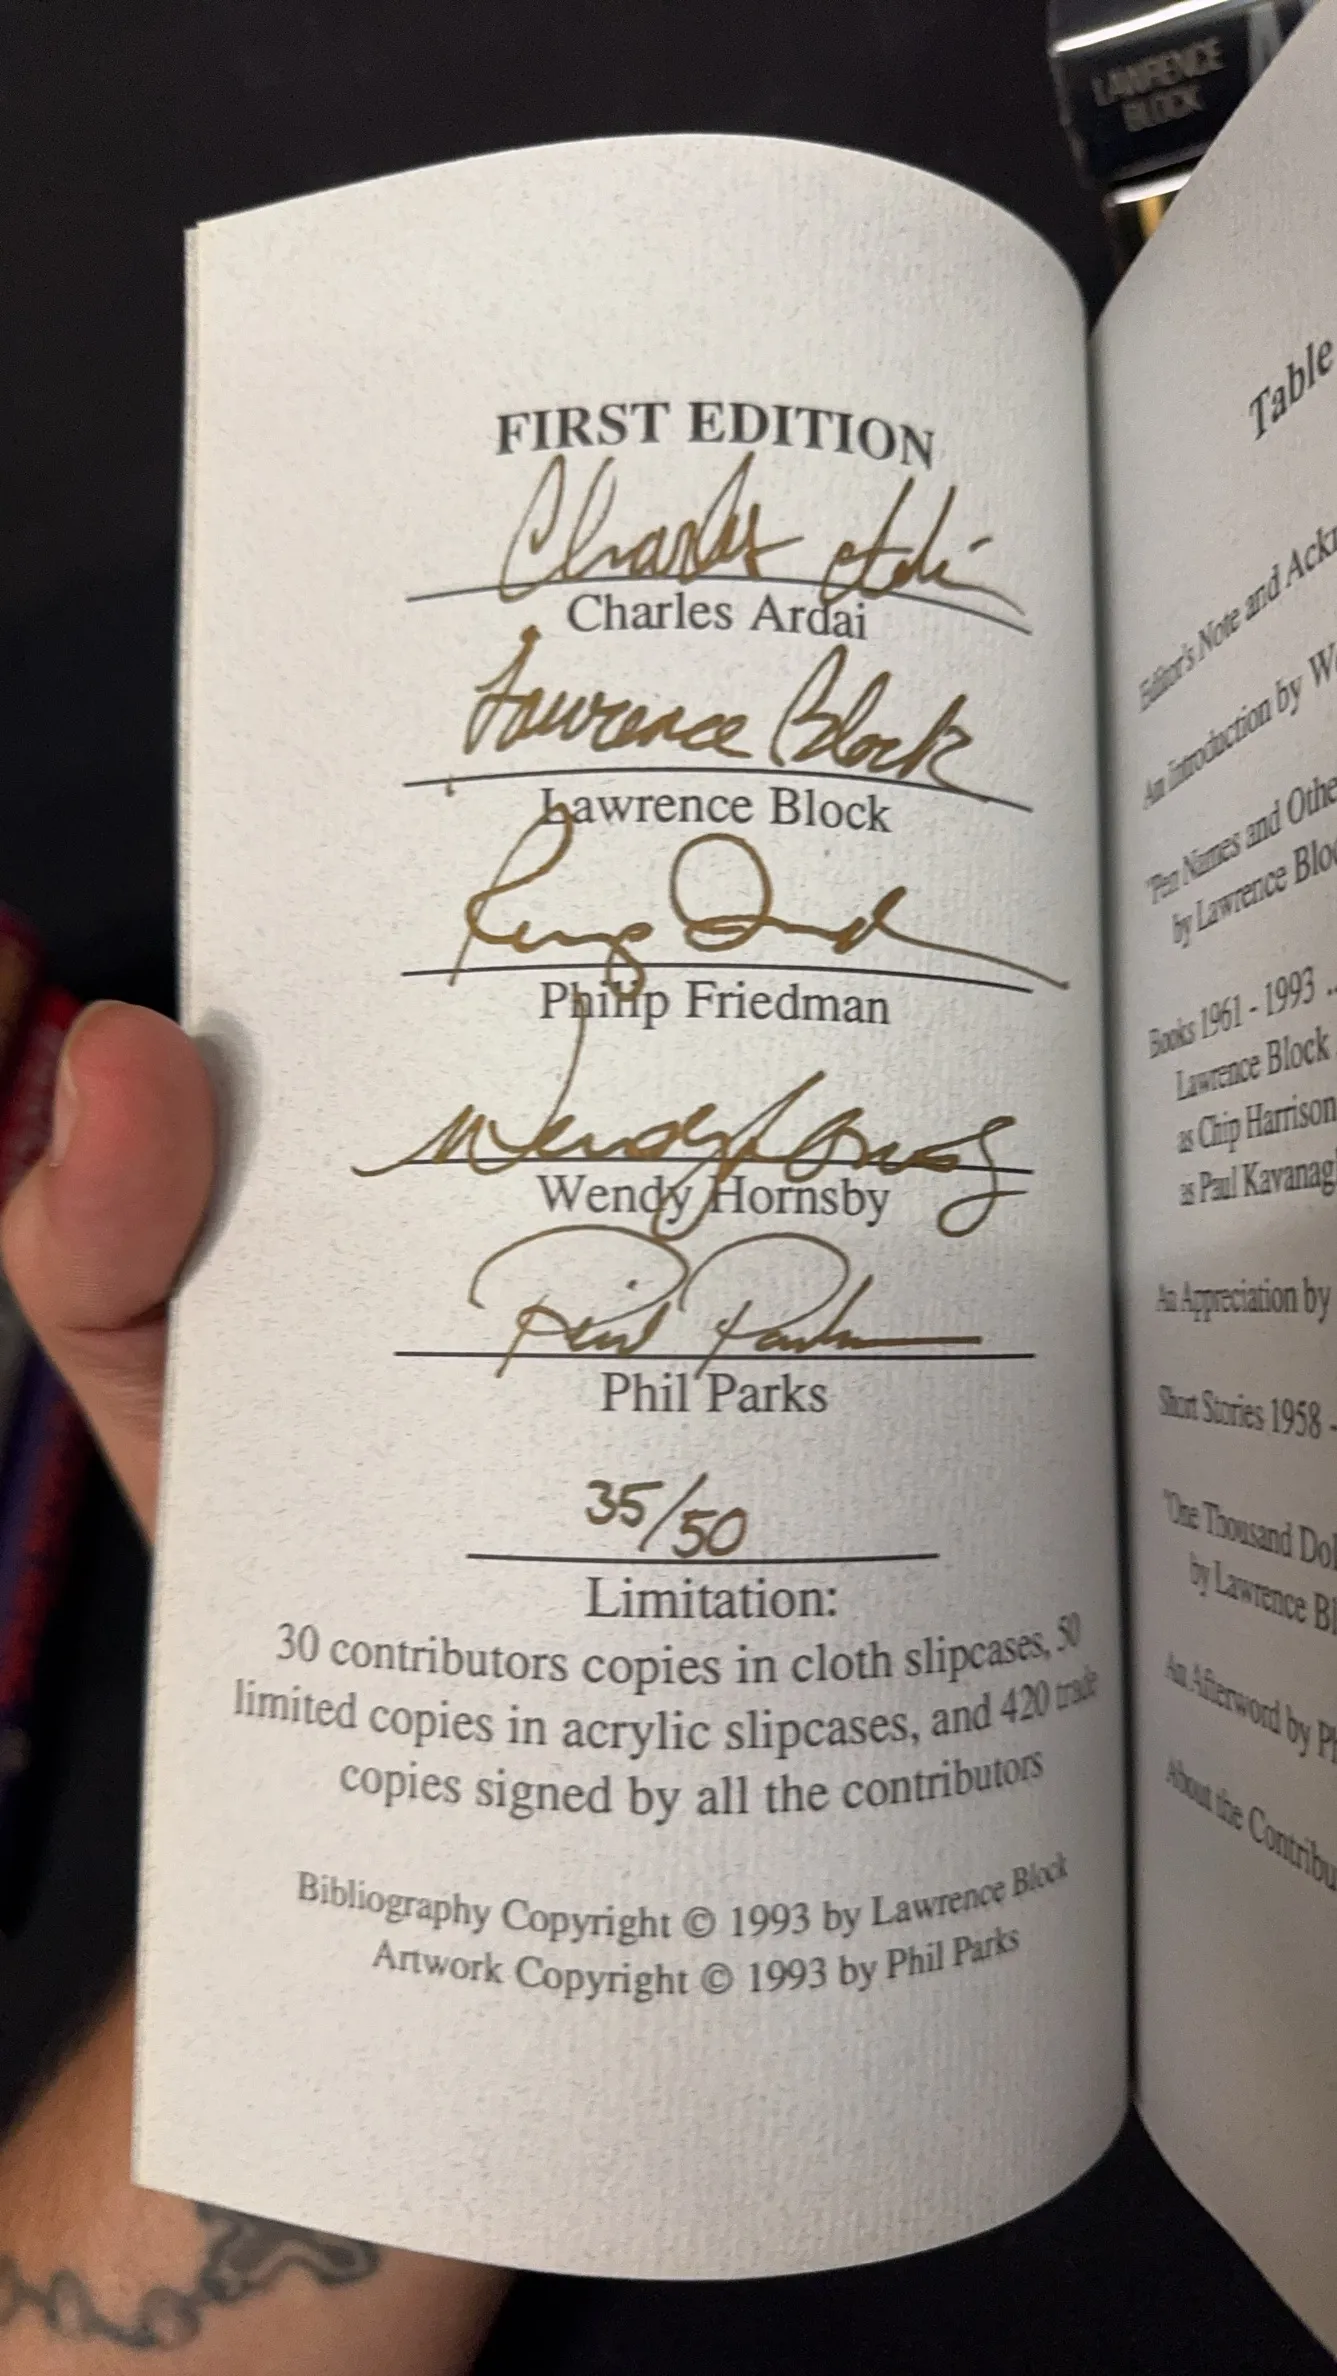 LAWRENCE
BLOCK
FIRST EDITION
Charles Ardai
Charles Ardai
Lawrence Block
Lawrence Block
Philip Friedman
Wendy Hornsby
Wendy Hornsby
Phil Parks
Phil Parks
35/50
Limitation:
30 contributors copies in cloth slipcases, 50
limited copies in acrylic slipcases, and 420 trade
copies signed by all the contributors
Bibliography Copyright © 1993 by Lawrence Block
Artwork Copyright © 1993 by Phil Parks
Table
Editor's Note and
An Introduction by
"Pen Names and
by Lawrence
Books 1961 - 1993 ..
Lawrence Block
as Chip Harrison
as Paul
An Appreciation by
Short Stories 1958 -
"One Thousand
by Lawrence
An Afterword by
About the